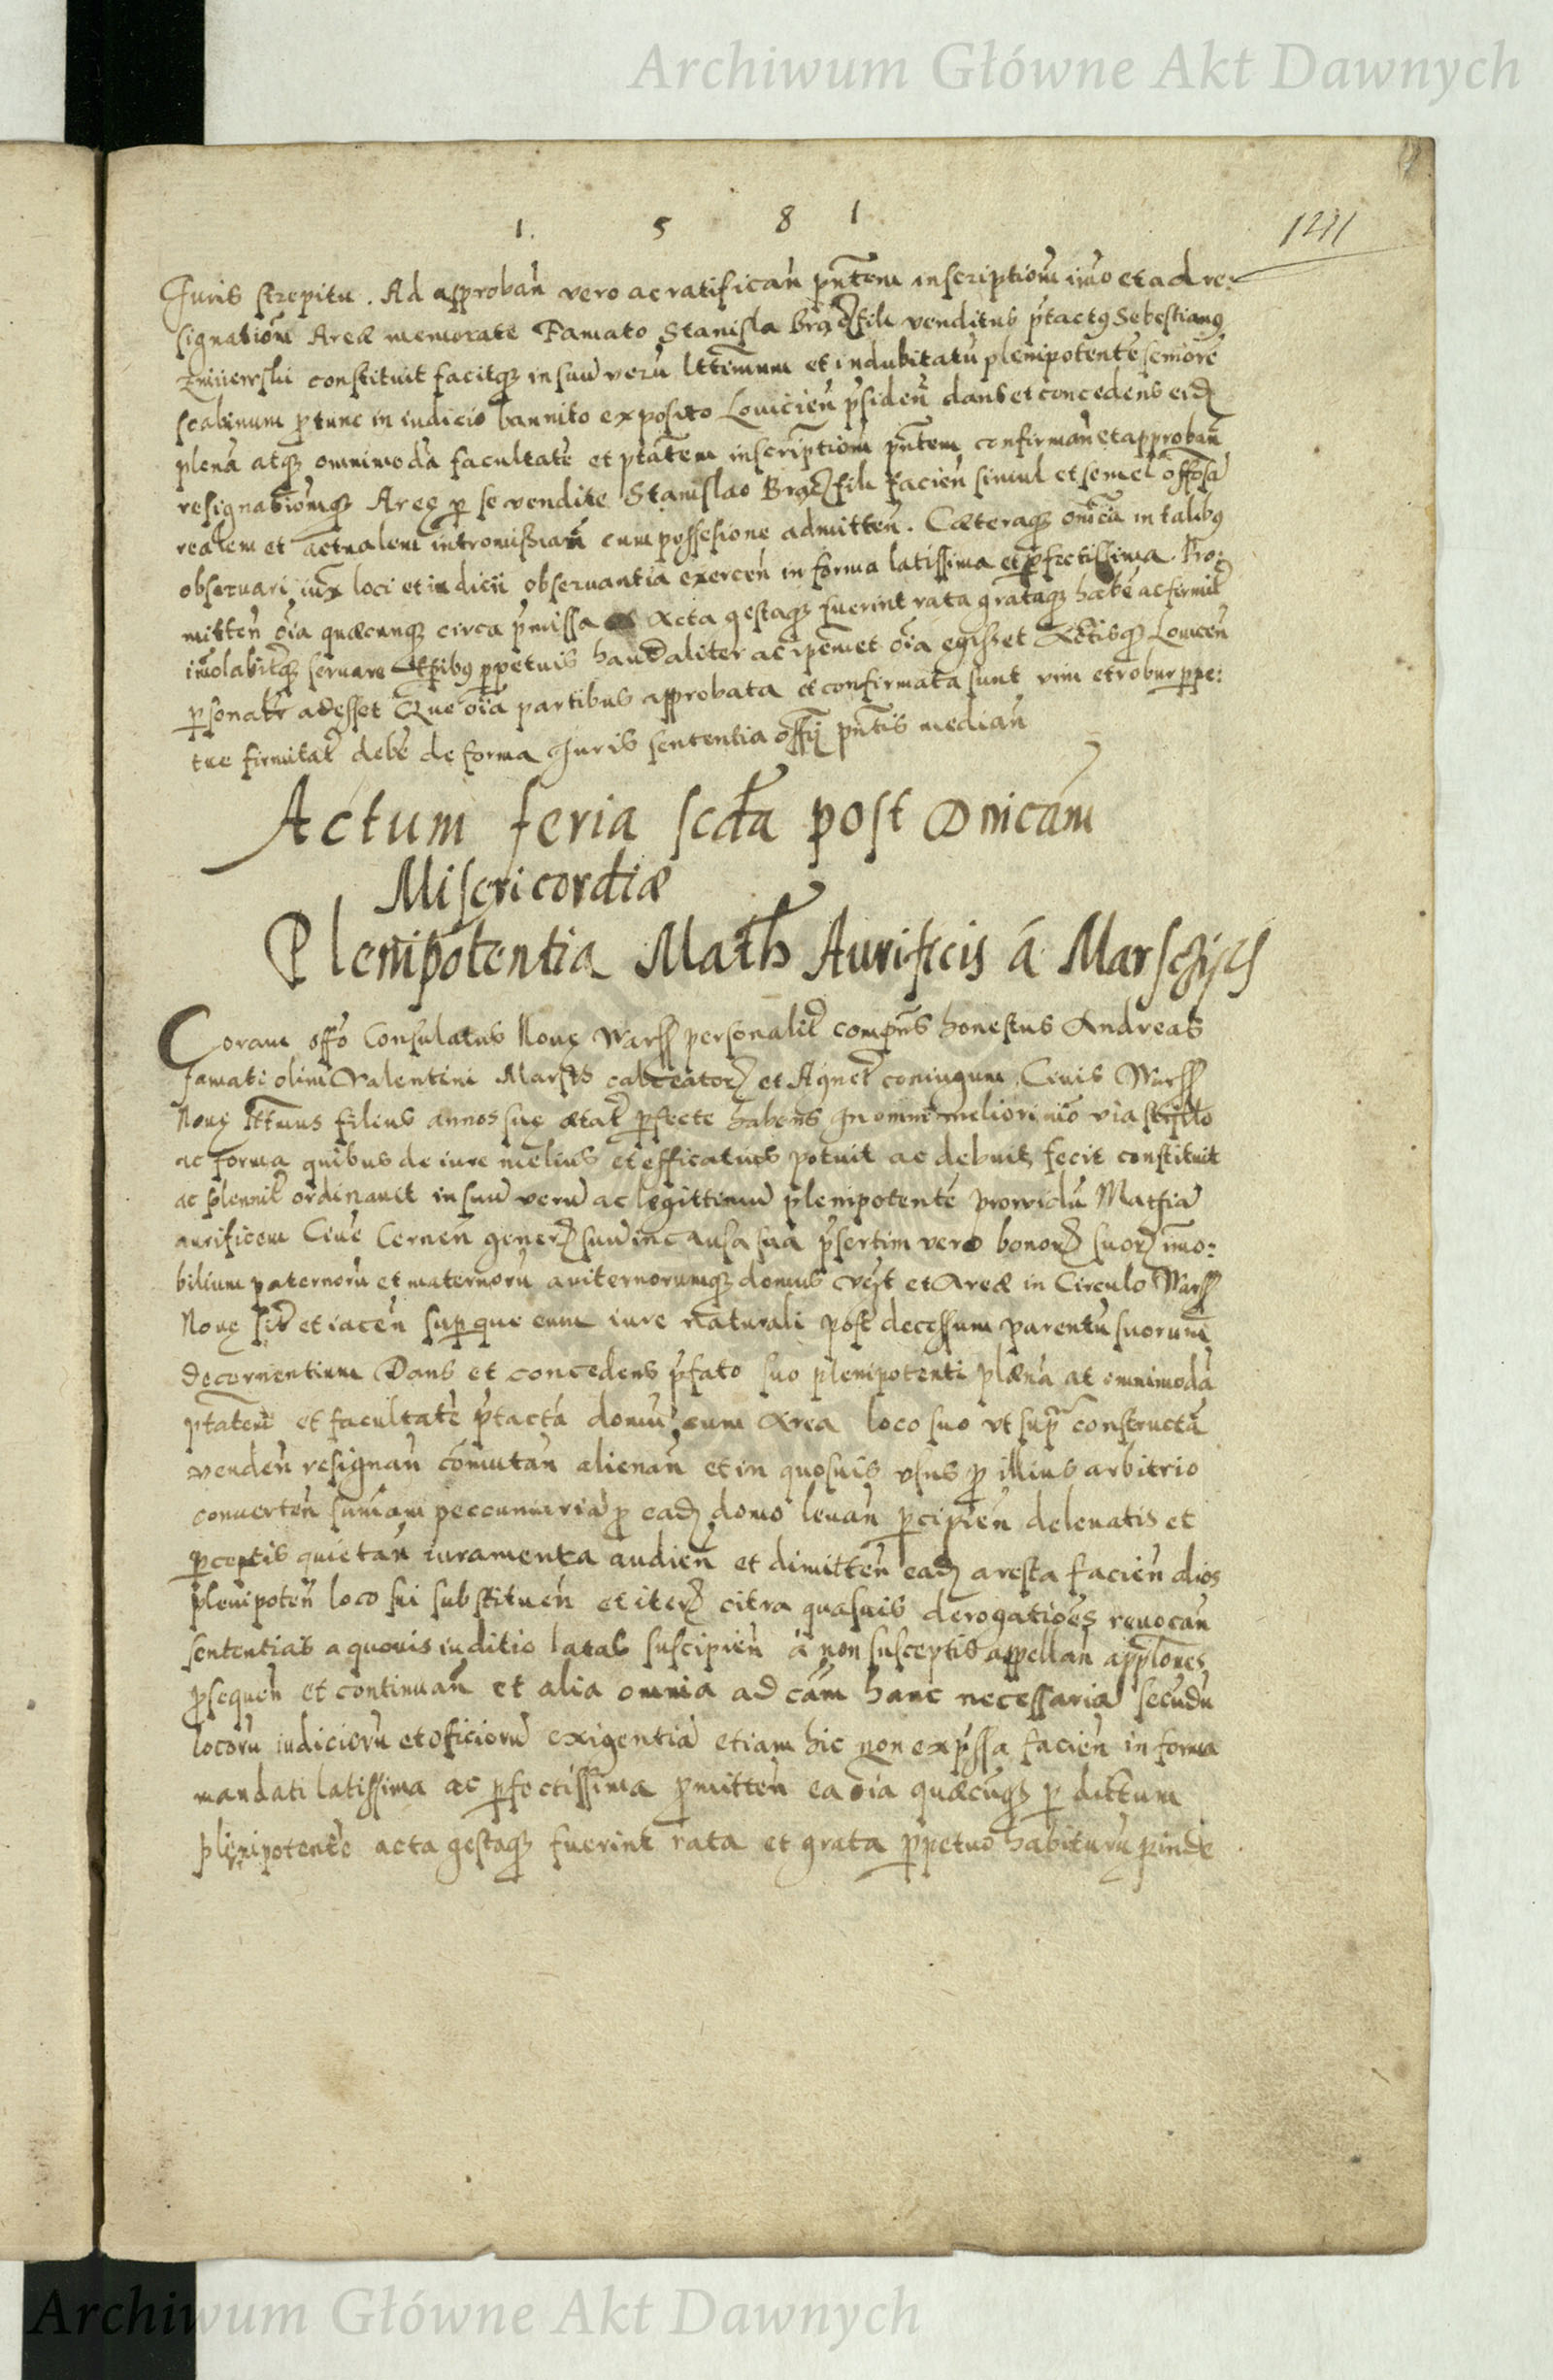 Archiwum Główne Akt Dawnych
1. 5 8 1
1211
Juris strepitu. Ad approbań vero ac ratificań pñtem inscriptiom imo et ad re:
signatiom Areæ memorate Famato Stanisla fili venditus ptactq Sebestianq
constituit facitqz in suū verū lttimum et indubitatū plenipotentē seniorē
scabinum p tunc in iudicio bannito exposito Louicień psideń dans et concedens eidz
plenā atqz omnimodā facultatē et ptatem inscriptiom pñtem confirmań et approbań
resignatiomqz Areę p se vendite Stanislao fili facień simul et semel
realem et actualem cum possesione admitteń. Cæteraqz in talibq
obseruari iux loci et iudicii obseruantia exerceń in forma latissima et pfectissima. Pro:
mitteń oia quæcunqz circa pmissa acta gestaqz fuerint rata grataqz habē ac firmit
seruare ppetuis haud aliter ac ipemet oia egisset Louiceń
psonalr adesset Que oia partibus approbata et confirmata sunt vim et robur ppe:
tue firmitat debē de forma Juris sententia offij pñtis mediań
Actum feria scda post Dnicam
Misericordiæ
Plenipotentia Math Aurificis á
Coram offo Consulatus Nouę Warss personalit compns honestus Andreas
famati olim Valentini calceatorz et Agnet coniugum Ciuis Warss
Nouę lttimus filius annos suę ætat pfecte habens In omni meliori mō via
ac forma quibus de iure melius et efficatius potuit ac debuit fecit constituit
ac solennit ordinauit in suū verū ac legittimū plenipotentē prouidū Mathiā
aurificem Ciuē Cerneń generz suū in causa sua psertim vero bonorz suorz imo:
bilium paternorū et maternorū auiternorumqz domus et Areæ in Circulo Warss
Nouę sit et iaceń sup que eum iure naturali post decessum parentū suorum
Dans et concedens pfato suo plenipotenti plænā at omnimodā
ptatem et facultatē ptactā domū cum Area loco suo vt supra constructā
vendeń resignań comutań alienań et in quosuis vsus p illius arbitrio
conuerteń sumam peccuniariā p eadz domo leuań pcipień de leuatis et
pceptis quietań iuramenta audień et dimitteń eadz aresta facień
plenipoteń loco sui substitueń et iterz citra quasuis derogatioēs reuocań
sententias a quouis iuditio latas suscipień á non susceptis appellań
psequeń et continuań et alia omnia ad cām hanc necessaria secūdū
locorū iudiciorū et oficiorū exigentiā etiam hic non expssa facień in forma
mandati latissima ac pfectissima pmitteń ea oia quæcūqz p dictum
plenipotentē acta gestaqz fuerint rata et grata ppetuo habiturū pinde
Archiwum Główne Akt Dawnych